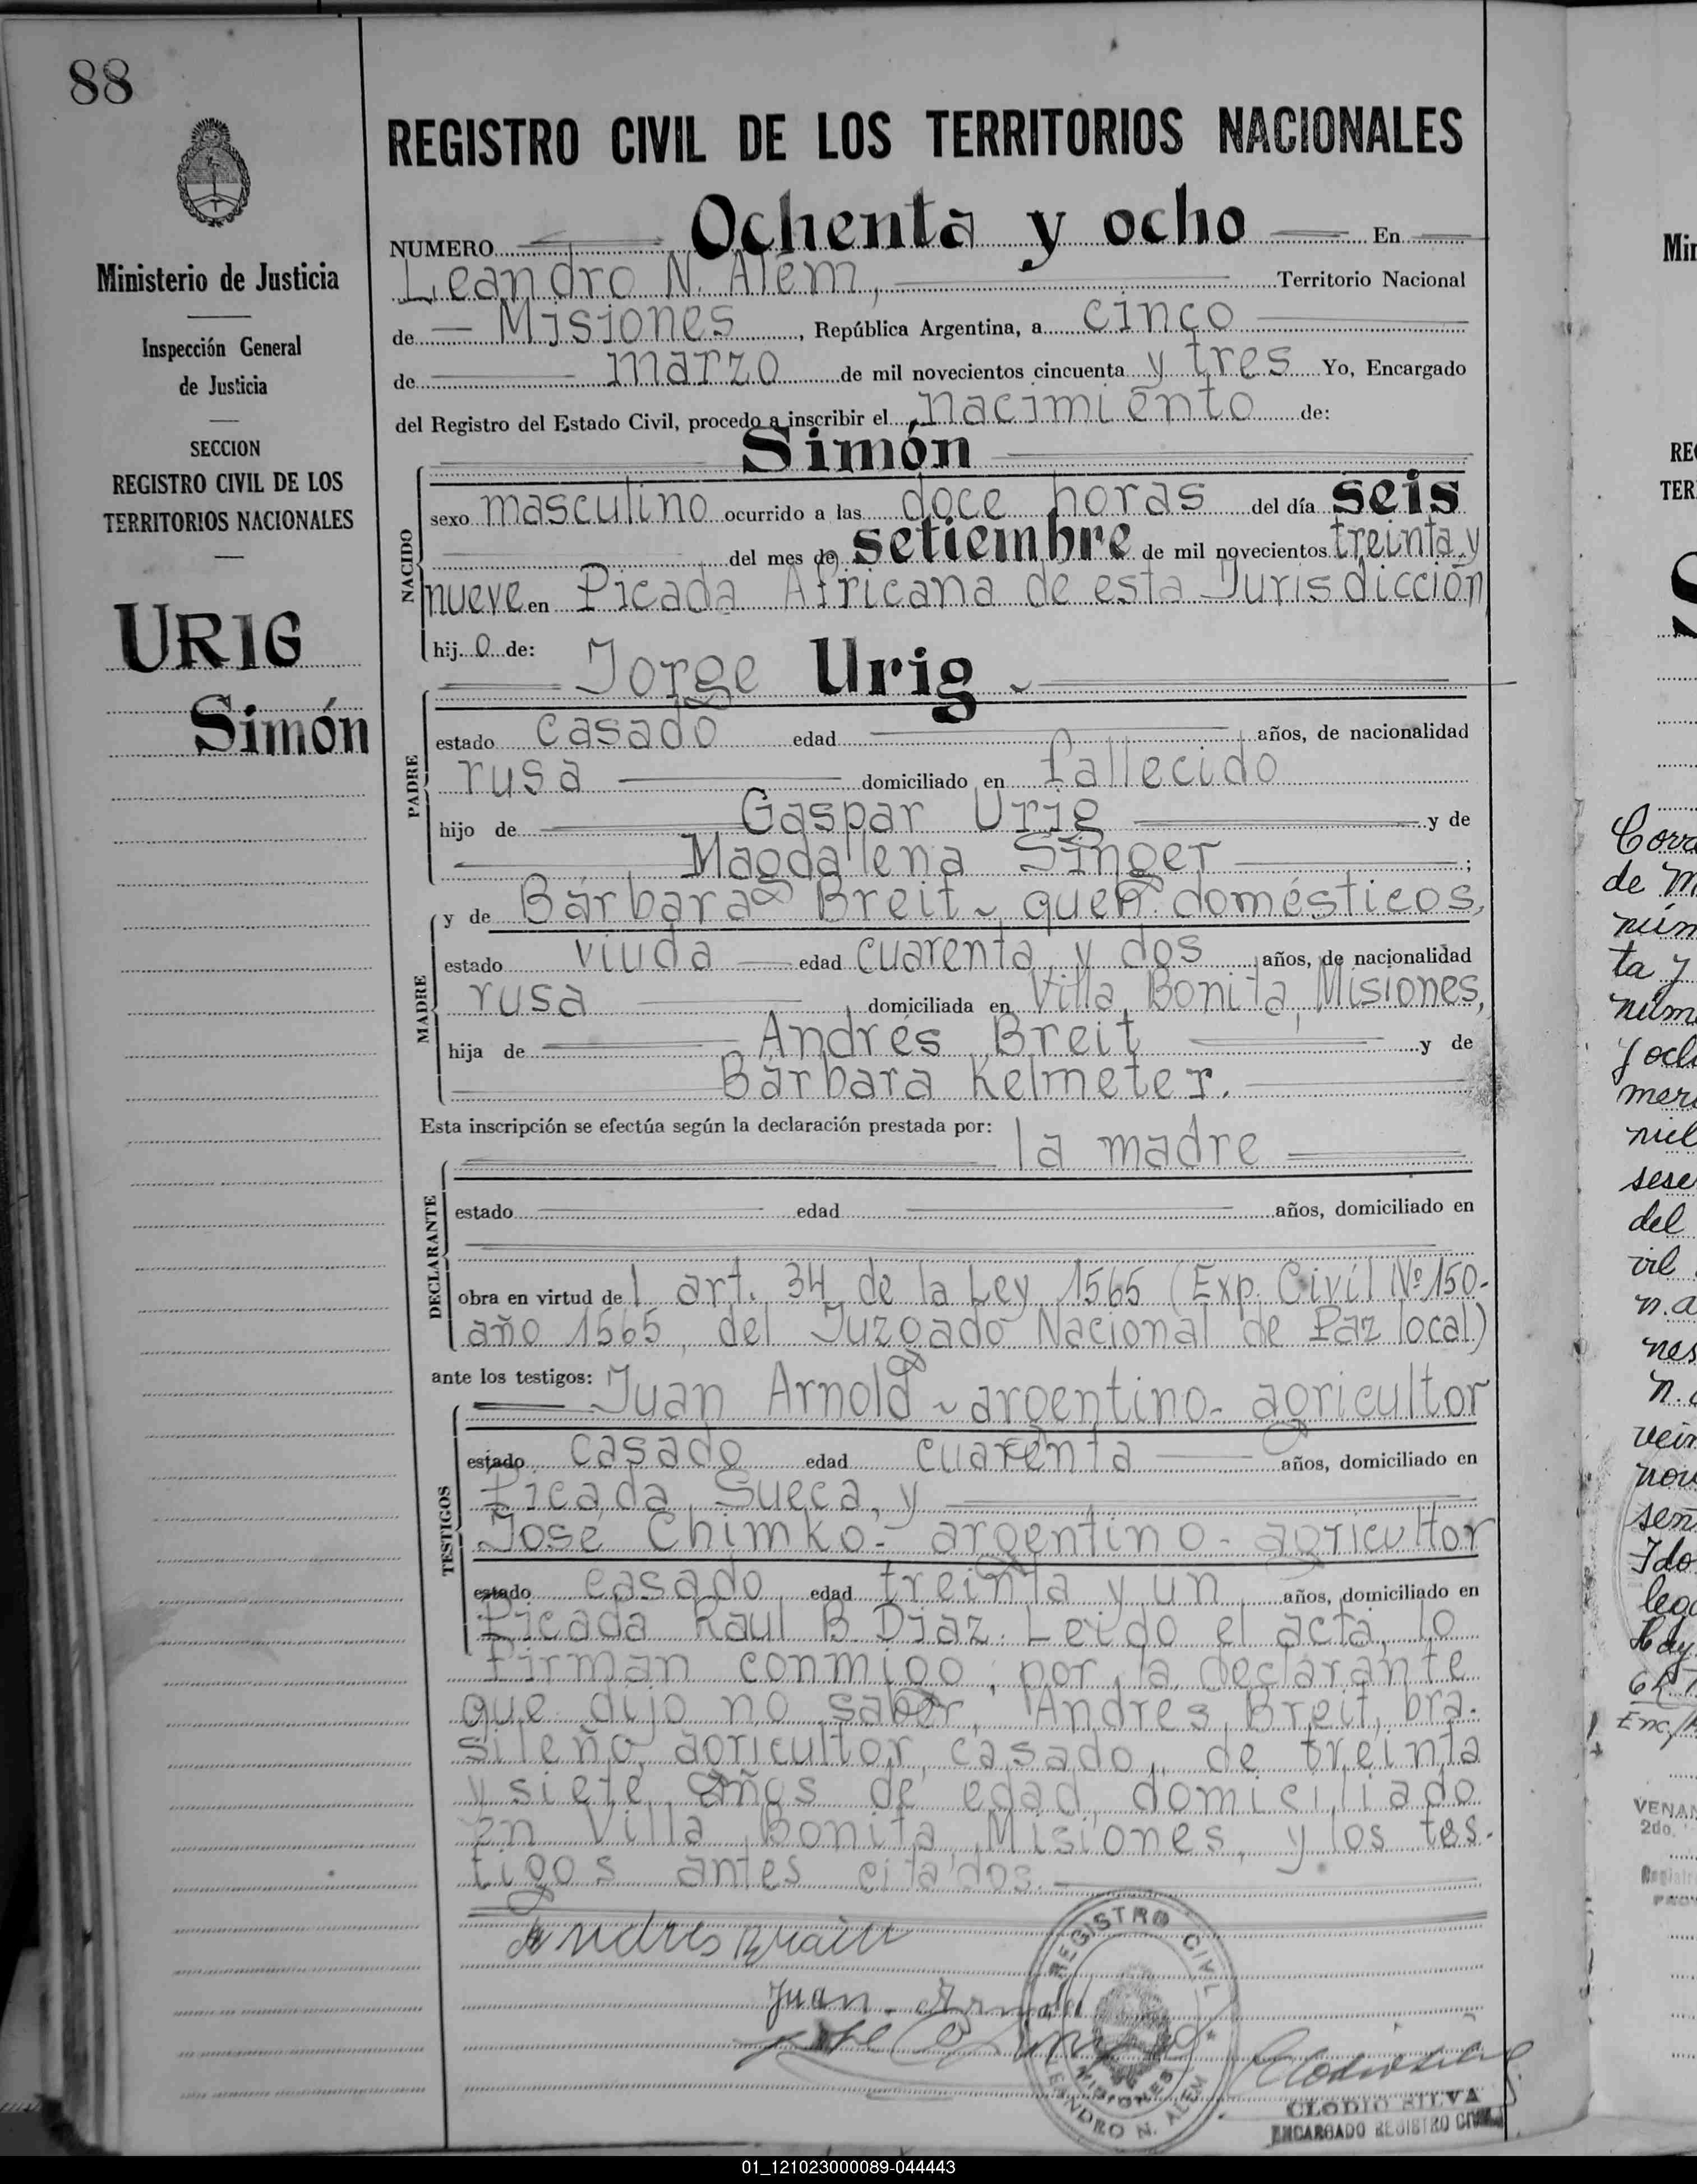 88
Ministerio de Justicia
Inspección General
de Justicia
SECCION
REGISTRO CIVIL DE LOS
TERRITORIOS NACIONALES
URIG
Simón
REGISTRO CIVIL DE LOS TERRITORIOS NACIONALES
NUMERO Ochenta y ocho En
Leandro N. Alem, Territorio Nacional
de Misiones, República Argentina, a cinco
de marzo de mil novecientos cincuenta y tres Yo, Encargado
del Registro del Estado Civil, procedo a inscribir el nacimiento de:
Simón
NACIDO
sexo masculino ocurrido a las doce horas del día seis
del mes de setiembre de mil novecientos treinta y
nueve en Picada Africana de esta Jurisdicción
hijo de:
Jorge Urig
PADRE
estado casado edad años, de nacionalidad
rusa domiciliado en fallecido
hijo de Gaspar Urig y de
Magdalena Singer;
y de Bárbara Breit queh. domésticos,
MADRE
estado viuda edad cuarenta y dos años, de nacionalidad
rusa domiciliada en Villa Bonita, Misiones,
hija de Andrés Breit y de
Bárbara Kelmeter.
Esta inscripción se efectúa según la declaración prestada por:
la madre
DECLARANTE
estado edad años, domiciliado en
obra en virtud del art. 34 de la Ley 1565 (Exp. Civil Nº 150-
año 1565, del Juzgado Nacional de Paz local)
ante los testigos:
Juan Arnold - argentino - agricultor
TESTIGOS
estado casado edad cuarenta años, domiciliado en
Picada Sueca, y
José Chimko - argentino - agricultor
estado casado edad treinta y un años, domiciliado en
Picada Raul B. Diaz. Leido el acta, lo
firman conmigo, por la declarante
que dijo no saber, Andres Breit, bra-
sileño, agricultor, casado, de treinta
y siete años de edad, domiciliado
en Villa Bonita, Misiones, y los tes-
tigos antes citados.
Andres
Juan Arnold
REGISTRO CIVIL
MISIONES
LEANDRO N. ALEM
CLODIO SILVA
ENCARGADO REGISTRO CIVIL
Corre
de M
núm
ta y
núme
y och
mer
niel
sese
del
vil
n. a
nes
n. a
vein
nov
sen
Ido
lega
Hay
VENAN
2do.
01_121023000089-044443